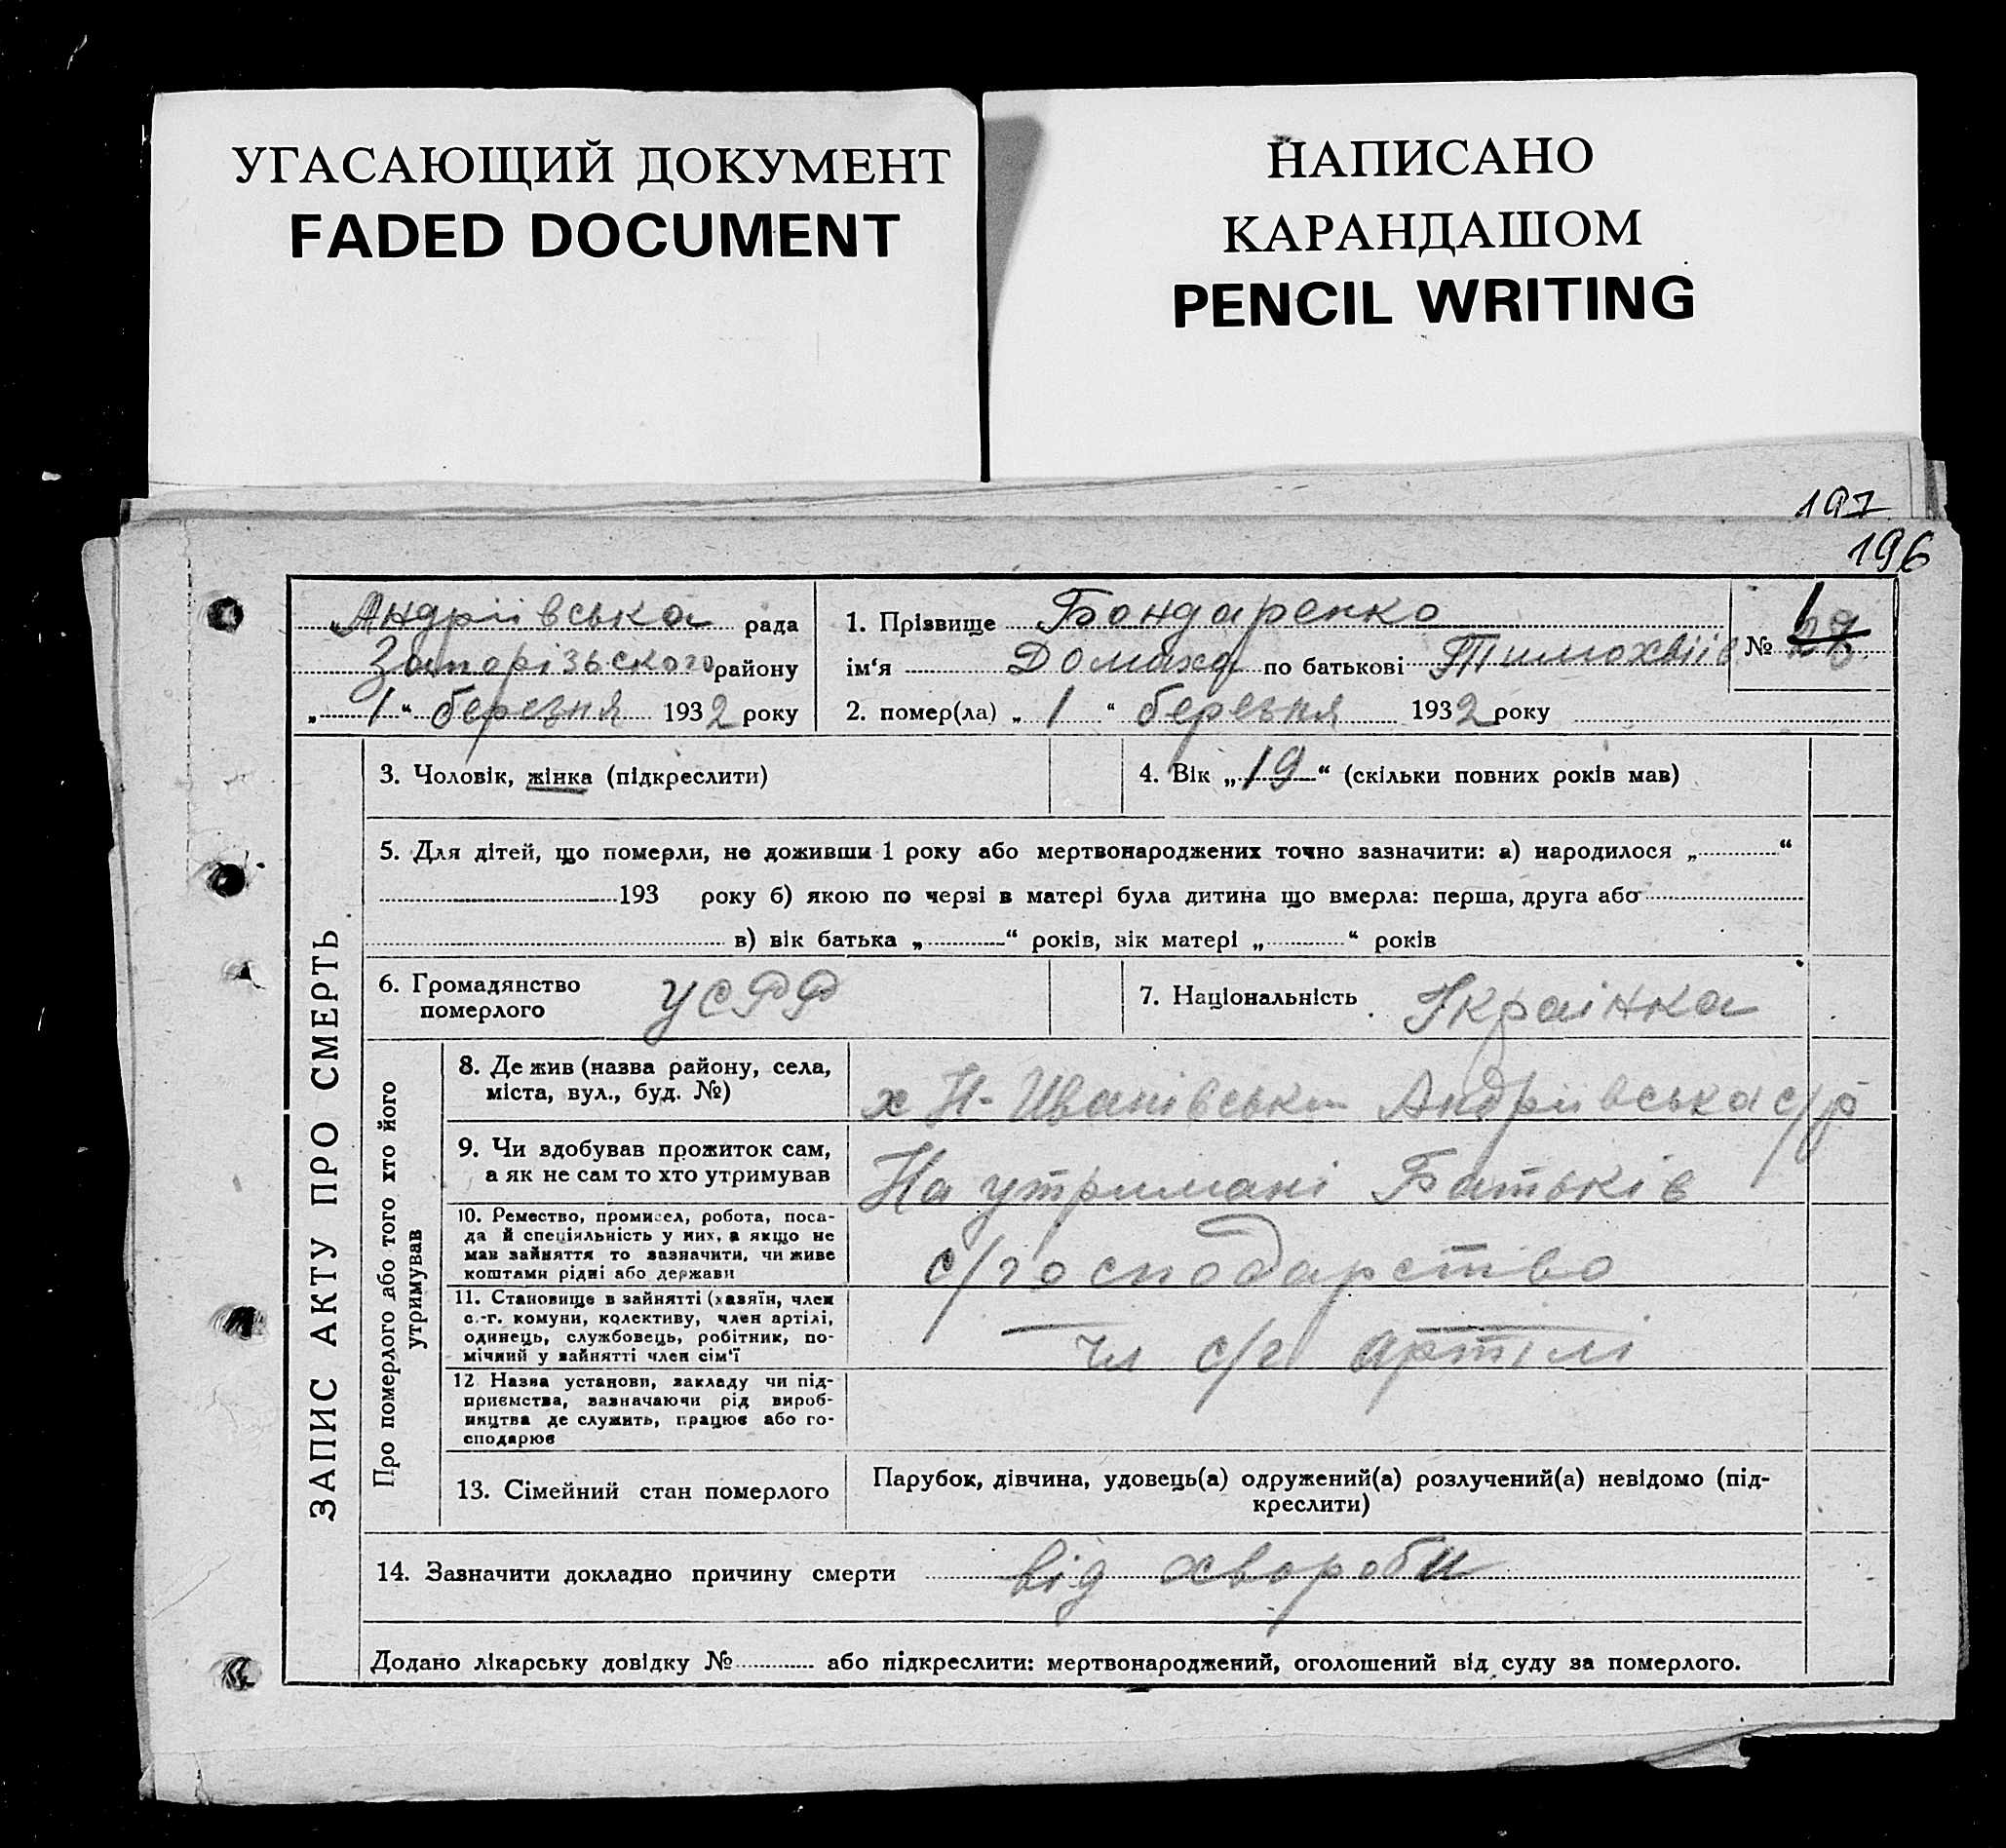 УГАСАЮЩИЙ ДОКУМЕНТ
FADED DOCUMENT
НАПИСАНО
КАРАНДАШОМ
PENCIL WRITING
197
196
Андріївська рада
Запорізьского району
„1“ березня 1932 року
1. Прізвище Бондаренко
ім‘я Домаха по батькові Тимохвіів
№ 1
2. помер(ла) „1“ березня 1932 року
ЗАПИС АКТУ ПРО СМЕРТЬ
3. Чоловік, жінка (підкреслити)
4. Вік „19“ (скільки повних років мав)
5. Для дітей, що померли, не доживши 1 року або мертвонароджених точно зазначити: а) народилося „ “
193 року б) якою по черзі в матері була дитина що вмерла: перша, друга або
в) вік батька „ “ років, вік матері „ “ років
6. Громадянство
померлого
УСРР
7. Національність Українка
Про померлого або того хто його
утримував
8. Де жив (назва району, села,
міста, вул., буд. №)
х Н- Иванівськ Андріівська с/р
9. Чи здобував прожиток сам,
а як не сам то хто утримував
На утримані Батьків
10. Ремество, промисел, робота, поса-
да й спеціяльність у них, а якщо не
мав зайняття то зазначити, чи живе
коштами рідні або держави
с/господарство
11. Становище в зайнятті (хазяїн, член
с.-г. комуни, колективу, член артілі,
одинець, службовець, робітник, по-
мічний у зайнятті член сім‘ї
чл с/г артілі
12. Назва установи, закладу чи під-
приємства, зазначаючи рід вироб-
ництва де служить, працює або го-
сподарює
13. Сімейний стан померлого
Парубок, дівчина, удовець(а) одружений(а) розлучений(а) невідомо (під-
креслити)
14. Зазначити докладно причину смерти від хвороби
Додано лікарську довідку № або підкреслити: мертвонароджений, оголошений від суду за померлого.